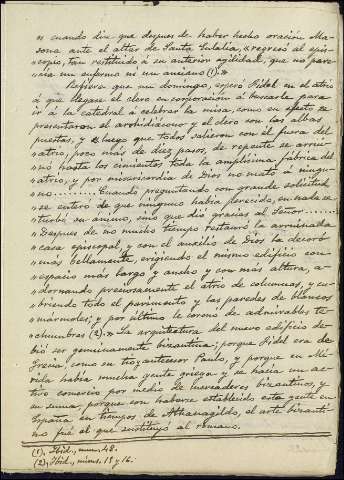 « cuando dice que despues de haber hecho oracion Ma-
sona ante el altar de Santa Eulalia, «regresó al epis-
«copio, tan restituido á su anterior agilidad, que no pare-
«cia un enfermo ni un anciano (1).»
Refiere que un domingo, espero Fidel en el atrio
á que llegase el clero en corporacion á buscarle para
ir á la catedral á celebrar la misa, como en efecto se
presentaron el archidiácono y el clero con las albas
puestas, y «luego que todos salieron con él fuera del
«atrio, poco más de diez pasos, de repente se arrui-
«nó hasta los cimientos toda la amplisima fábrica del
«atrio, y por misericordia de Dios no mató á ningu-
«no........ Cuando preguntando con grande solicitud
«se enteró de que ninguno habia perecido, en nada se
«turbó su ánimo, sino que dio gracias al Señor........
«Despues de no mucho tiempo restauró la arruinada
«casa episcopal, y con el auxilio de Dios la decoró
«más bellamente, erigiendo el mismo edificio con
«espacio más largo y ancho y con más altura, a-
«dornando preciosamente el atrio de columnas, y cu-
«briendo todo el pavimento y las paredes de blancos
«mármoles; y por último le coronó de admirables te-
«chumbres (2).» La arquitectura del nuevo edificio de-
bió ser genuinamente bizantina; porque Fidel era de
Grecia, como su tio y antecesor Paulo, y porque en Mé-
rida habia mucha gente griega y se hacia un ac-
tivo comercio por medio de mercaderes bizantinos, y
en suma, porque con haberse establecido esta gente en
España en tiempos de Athanagildo, el arte bizanti-
no fué el que sustituyó al romano.
(1), Ibid., num. 48.
(2), Ibid., núms. 15 y 16.